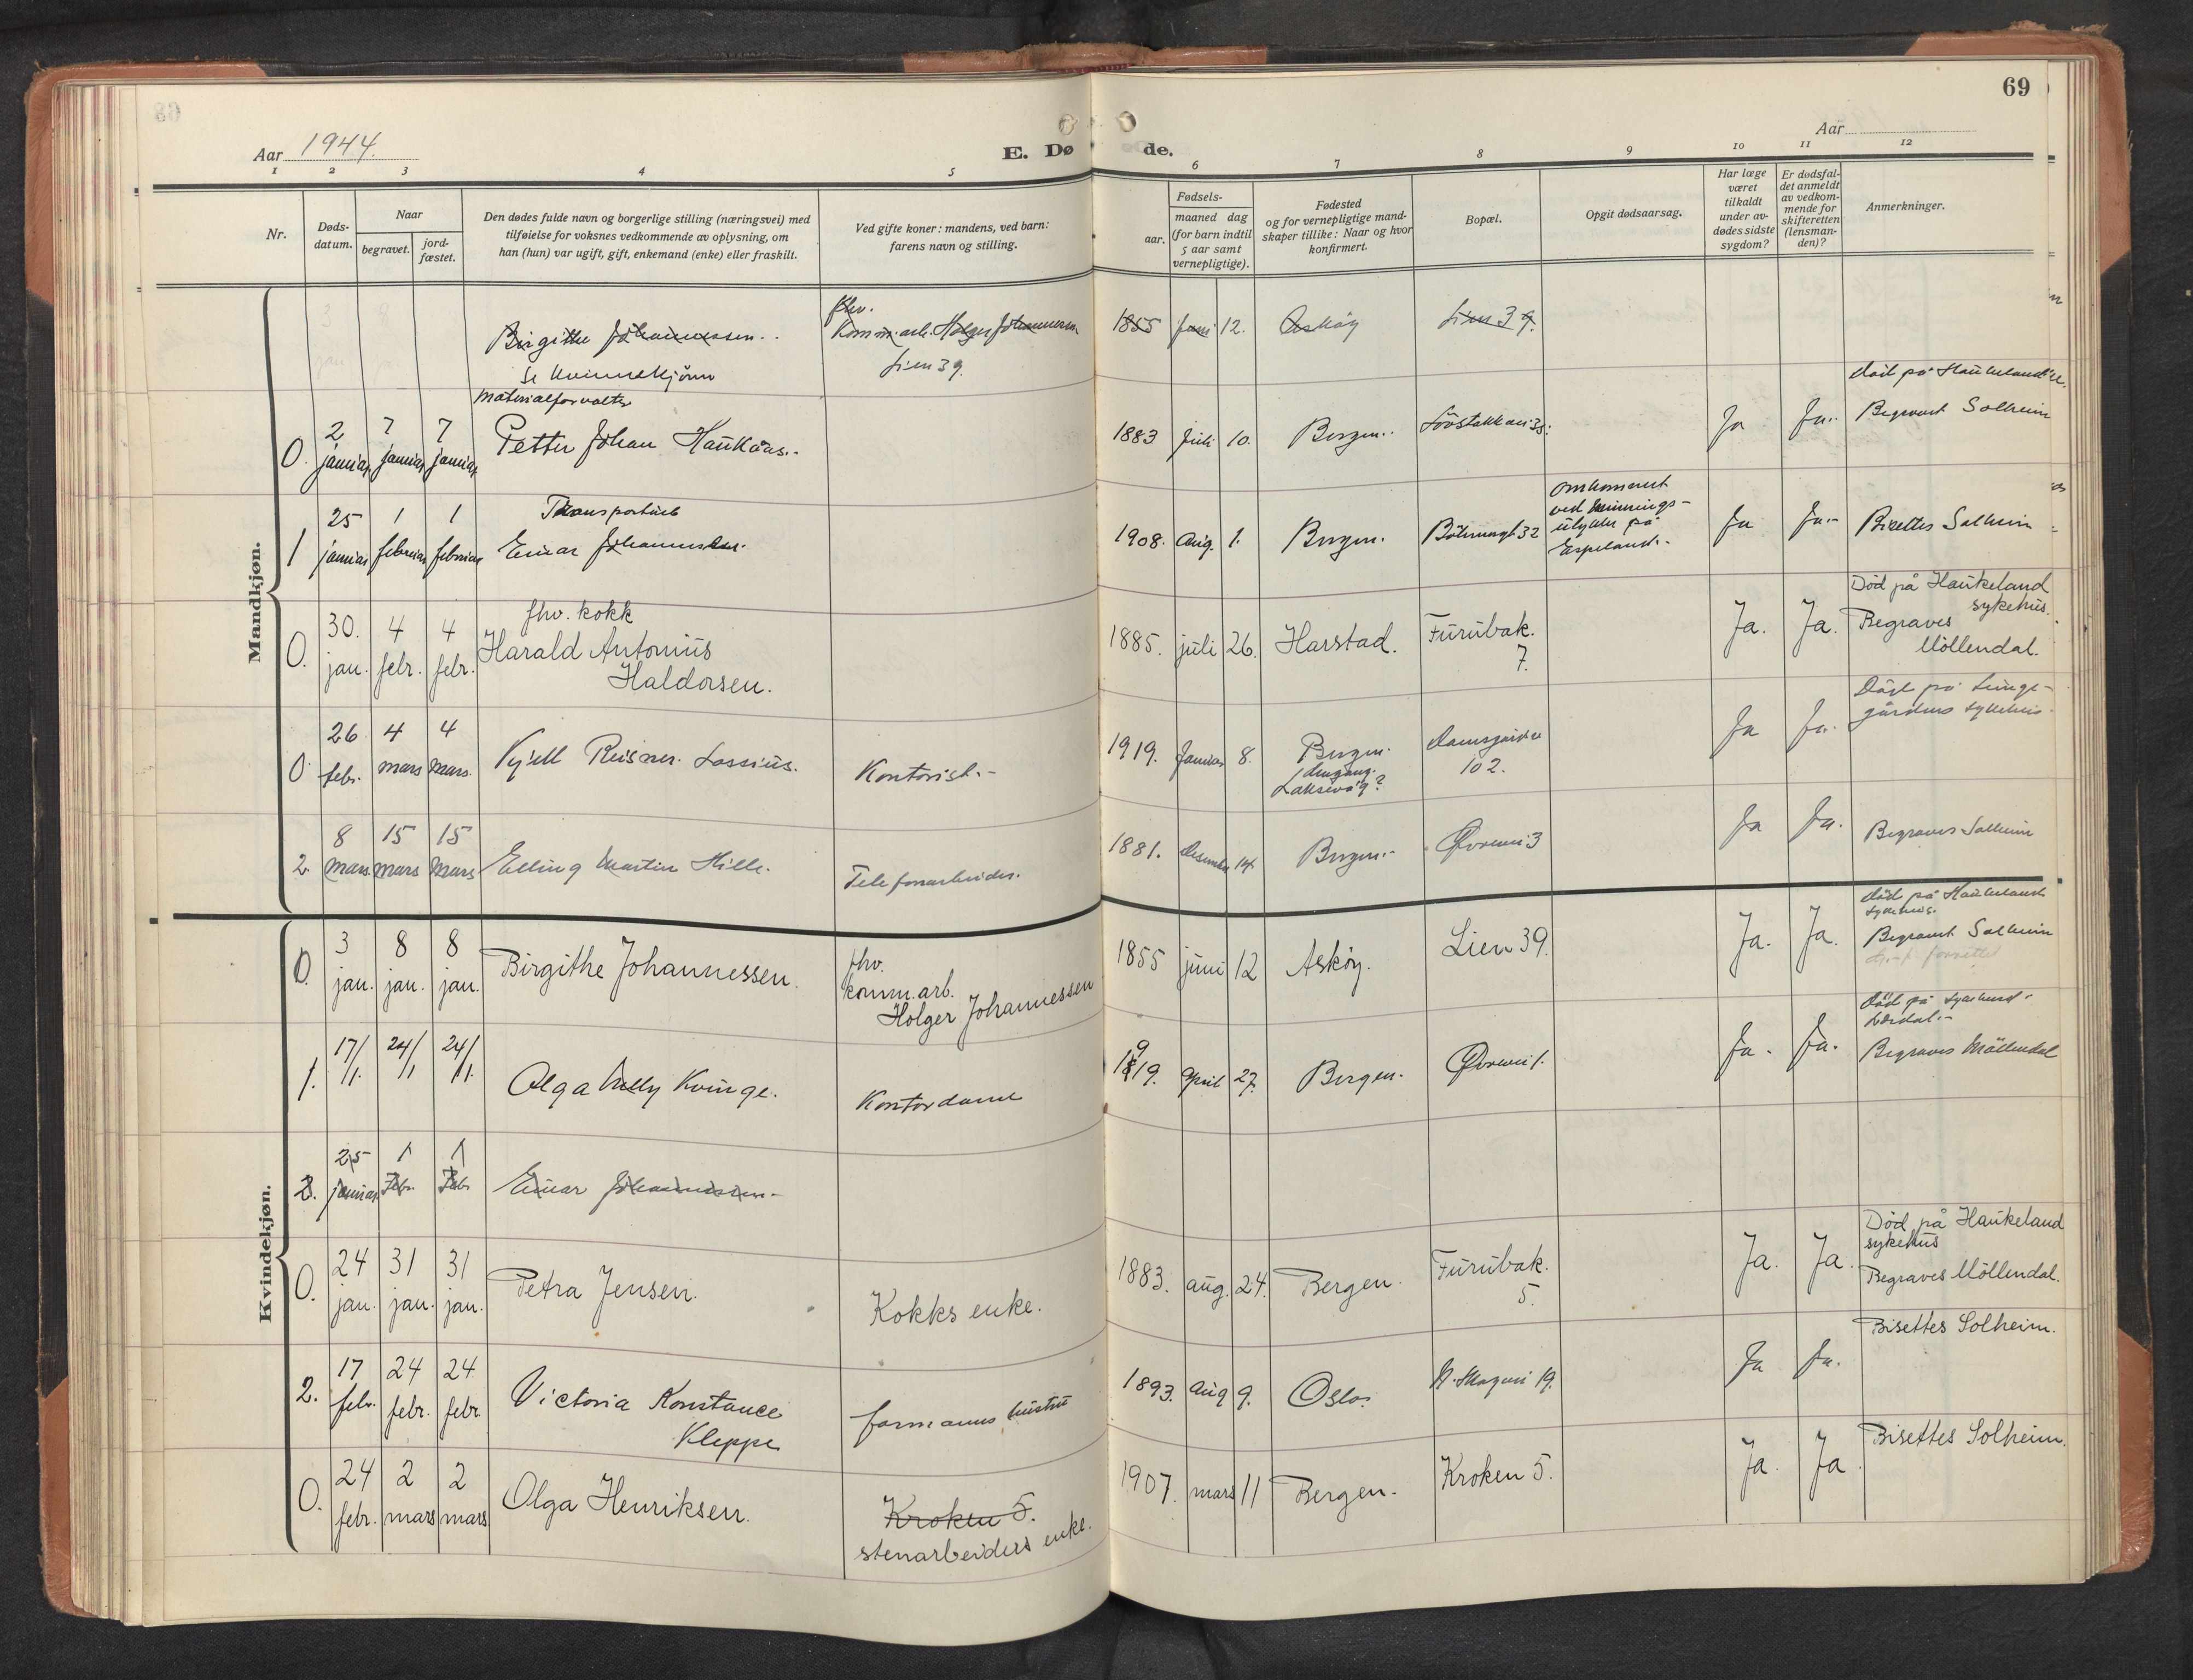 69
Aar 1944.
E. Dø
de.
Aar
1 2 3 4 5 6 7 8 9 10 11 12
Nr.
Døds-
datum.
Naar
begravet.
jord-
fæstet.
Den dødes fulde navn og borgerlige stilling (næringsvei) med
tilføielse for voksnes vedkommende av oplysning, om
han (hun) var ugift, gift, enkemand (enke) eller fraskilt.
Ved gifte koner: mandens, ved barn:
farens navn og stilling.
Fødsels-
aar.
maaned dag
(for barn indtil
5 aar samt
vernepligtige).
Fødested
og for vernepligtige mand-
skaper tillike: Naar og hvor
konfirmert.
Bopæl.
Opgit dødsaarsag.
Har læge
været
tilkaldt
under av-
dødes sidste
sygdom?
Er dødsfal-
det anmeldt
av vedkom-
mende for
skifteretten
(lensman-
den)?
Anmerkninger.
Mandkjøn.
Birgithe Johannessen.
Se Kvinnekjönn
fhv.
Komm. arb. Holger Johannessen
Lien 39.
1855 juni 12. Askøy Lien 39.
0. 2 januar 7 januar 7 januar
Materialforvalter
Petter Johan Haukaas.
1883 juli 10. Bergen. Ja Ja.
Begravet Solheim
1 25 januar 1 februar 1 februar
Einar Johannessen.
1908. Aug. 1. Bergen.
omkommet
ved
ulykke på
Espeland.
Ja Ja. Bisettes Solheim
0. 30. jan. 4 febr. 4 febr.
fhv. kokk
Harald Antonius
Haldorsen.
1885. juli 26. Harstad. Furubak.
7.
Ja. Ja.
Död på Haukeland
sykehus.
Begraves
Möllendal.
0 26 febr. 4 mars 4 mars.
Kjell Reisner. Lossius.
Kontorist.
1919. Januar 8. Bergen.
Laksevåg?
102.
Ja Ja.
Död på Lunge-
gårdens sykehus.
2. 8 mars 15 mars 15 mars
Elling Martin Hille.
Telefonarbeider.
1881. desember 14. Bergen. Øvrevei 3
Ja Ja. Begraves Solheim
Kvindekjøn.
0. 3 jan. 8 jan. 8 jan.
Birgithe Johannessen.
fhv.
komm. arb.
Holger Johannessen
1855 juni 12 Asköy. Lien 39.
Ja. Ja.
död på Haukeland
sykehus.
Begravet Solheim
1. 17/1. 24/1 24/1.
Olga Kvinge.
Kontordame
1919. April 27. Bergen. Øvrevei 1.
Ja. Ja.
Begraves Möllendal
2. 25 januar 1 Febr. 1 Feb.
Einar Johannessen.
0. 24 jan. 31 jan. 31 jan.
Petra Jensen.
Kokks enke.
1883. aug. 24. Bergen. Furubak.
5.
Ja. Ja.
Död på Haukeland
sykehus
Begraves Möllendal.
2. 17 febr. 24 febr. 24 febr
Victoria Konstance
Kleppe
formanns hustru
1893. Aug 9. Oslo.
Ja Ja. Bisettes Solheim.
0. 24 febr. 2 mars 2 mars
Olga Henriksen.
Kroken 5.
stenarbeiders enke.
1907. mars 11 Bergen. Kroken 5.
Ja. Ja. Bisettes Solheim.